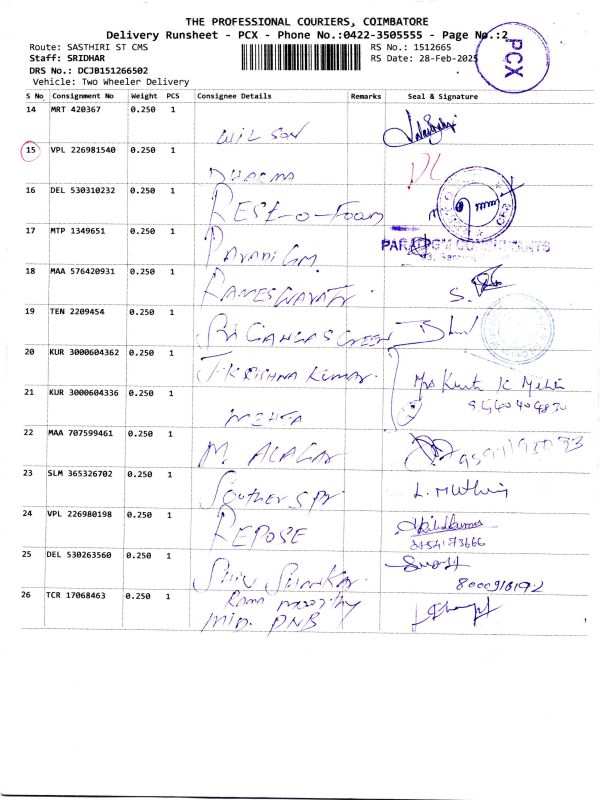 THE PROFESSIONAL COURIERS, COIMBATORE
Delivery Runsheet - PCX - Phone No.:0422-3505555 - Page No.:2
Route: SASTHIRI ST CMS
RS No.: 1512665
Staff: SRIDHAR
RS Date: 28-Feb-2025
DRS No.: DCJB151266502
Vehicle: Two Wheeler Delivery
PCX
S No Consignment No Weight PCS Consignee Details Remarks Seal & Signature
14 MRT 420367 0.250 1
WILSON
15 VPL 226981540 0.250 1
DHARMA
DL
16 DEL 530310232 0.250 1
REST-O-FOAM
17 MTP 1349651 0.250 1
PARADIGM
18 MAA 576420931 0.250 1
RAMESWARAN
19 TEN 2209454 0.250 1
SRI GANGAS GREEN
20 KUR 3000604362 0.250 1
J. KRISHNA KUMAR.
Mrs Kirti K Mehta
21 KUR 3000604336 0.250 1
MEHTA
22 MAA 707599461 0.250 1
M. ALAGAR
23 SLM 365326702 0.250 1
SOUTHERN SPR
L. Muthu
24 VPL 226980198 0.250 1
REPOSE
25 DEL 530263560 0.250 1
SHIV SHANKAR.
26 TCR 17068463 0.250 1
Rama moorthy
min. PNB